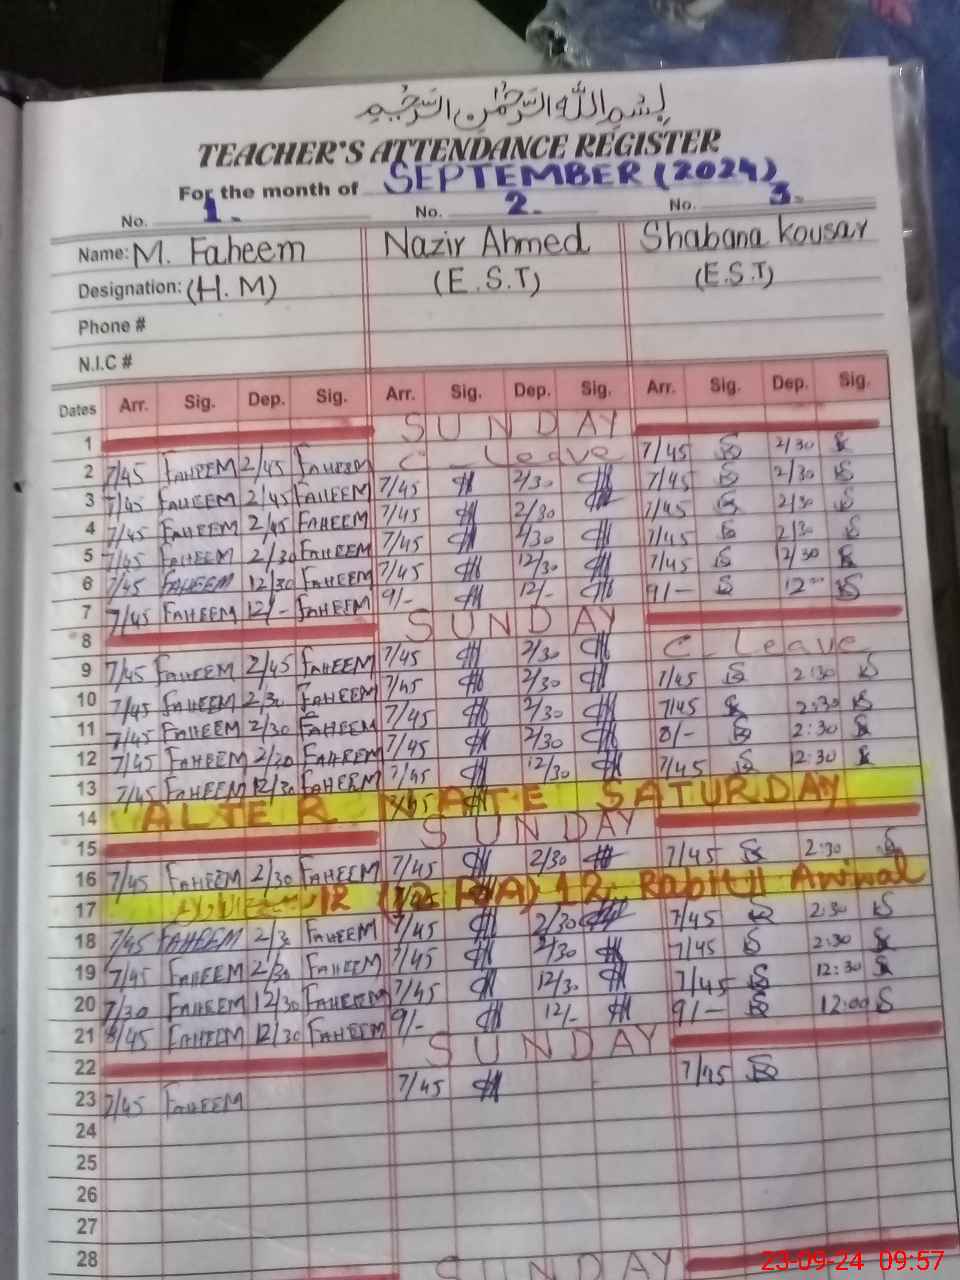 بِسْمِ اللهِ الرَّحْمٰنِ الرَّحِيْمِ
TEACHER'S ATTENDANCE REGISTER
For the month of SEPTEMBER (2024)
No. 1. No. 2. No. 3.
Name: M. Faheem Nazir Ahmed Shabana Kousar
Designation: (H.M) (E.S.T) (E.S.T)
Phone #
N.I.C #
Dates Arr. Sig. Dep. Sig. Arr. Sig. Dep. Sig. Arr. Sig. Dep. Sig.
1 SUNDAY
2 7/45 FAHEEM 2/45 FAHEEM C_Leave 7/45 2/30
3 7/45 FAHEEM 2/45 FAHEEM 7/45 2/30 7/45 2/30
4 7/45 FAHEEM 2/45 FAHEEM 7/45 2/30 7/45 2/30
5 7/45 FAHEEM 2/30 FAHEEM 7/45 2/30 7/45 2/30
6 7/45 FAHEEM 12/30 FAHEEM 7/45 12/30 7/45 12/30
7 7/45 FAHEEM 12/- FAHEEM 9/- 12/- 9/- 12
8 SUNDAY
9 7/45 FAHEEM 2/45 FAHEEM 7/45 2/30 C_Leave
10 7/45 FAHEEM 2/30 FAHEEM 7/45 2/30 7/45 2:30
11 7/45 FAHEEM 2/30 FAHEEM 7/45 2/30 7/45 2:30
12 7/45 FAHEEM 2/30 FAHEEM 7/45 2/30 8/- 2:30
13 7/45 FAHEEM 12/30 FAHEEM 7/45 12/30 7/45 12:30
14 ALTERNATE SATURDAY
15 SUNDAY
16 7/45 FAHEEM 2/30 FAHEEM 7/45 2/30 7/45 2:30
17 12 12 Rabi Awwal
18 7/45 FAHEEM 2/3 FAHEEM 7/45 2/30 7/45 2:30
19 7/45 FAHEEM 2/30 FAHEEM 7/45 2/30 7/45 2:30
20 7/30 FAHEEM 12/30 FAHEEM 7/45 12/30 7/45 12:30
21 8/45 FAHEEM 12/30 FAHEEM 9/- 12/- 9/- 12:00
22 SUNDAY
23 7/45 FAHEEM 7/45 7/45
24
25
26
27
28
SUNDAY
23-09-24 09:57